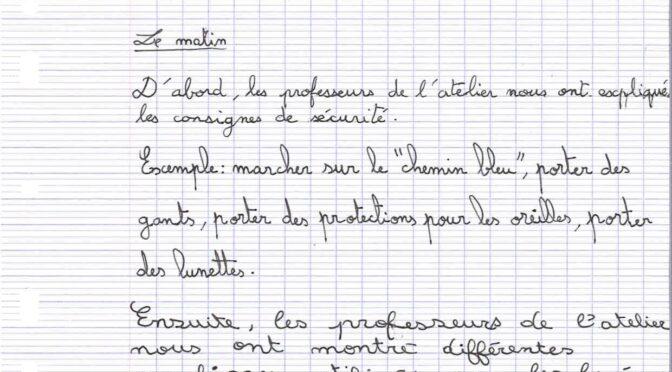 Le matin
D'abord, les professeurs de l'atelier nous ont expliqué
les consignes de sécurité.
Exemple: marcher sur le "chemin bleu", porter des
gants, porter des protections pour les oreilles, porter
des lunettes.
Ensuite, les professeurs de l'atelier
nous ont montré différentes